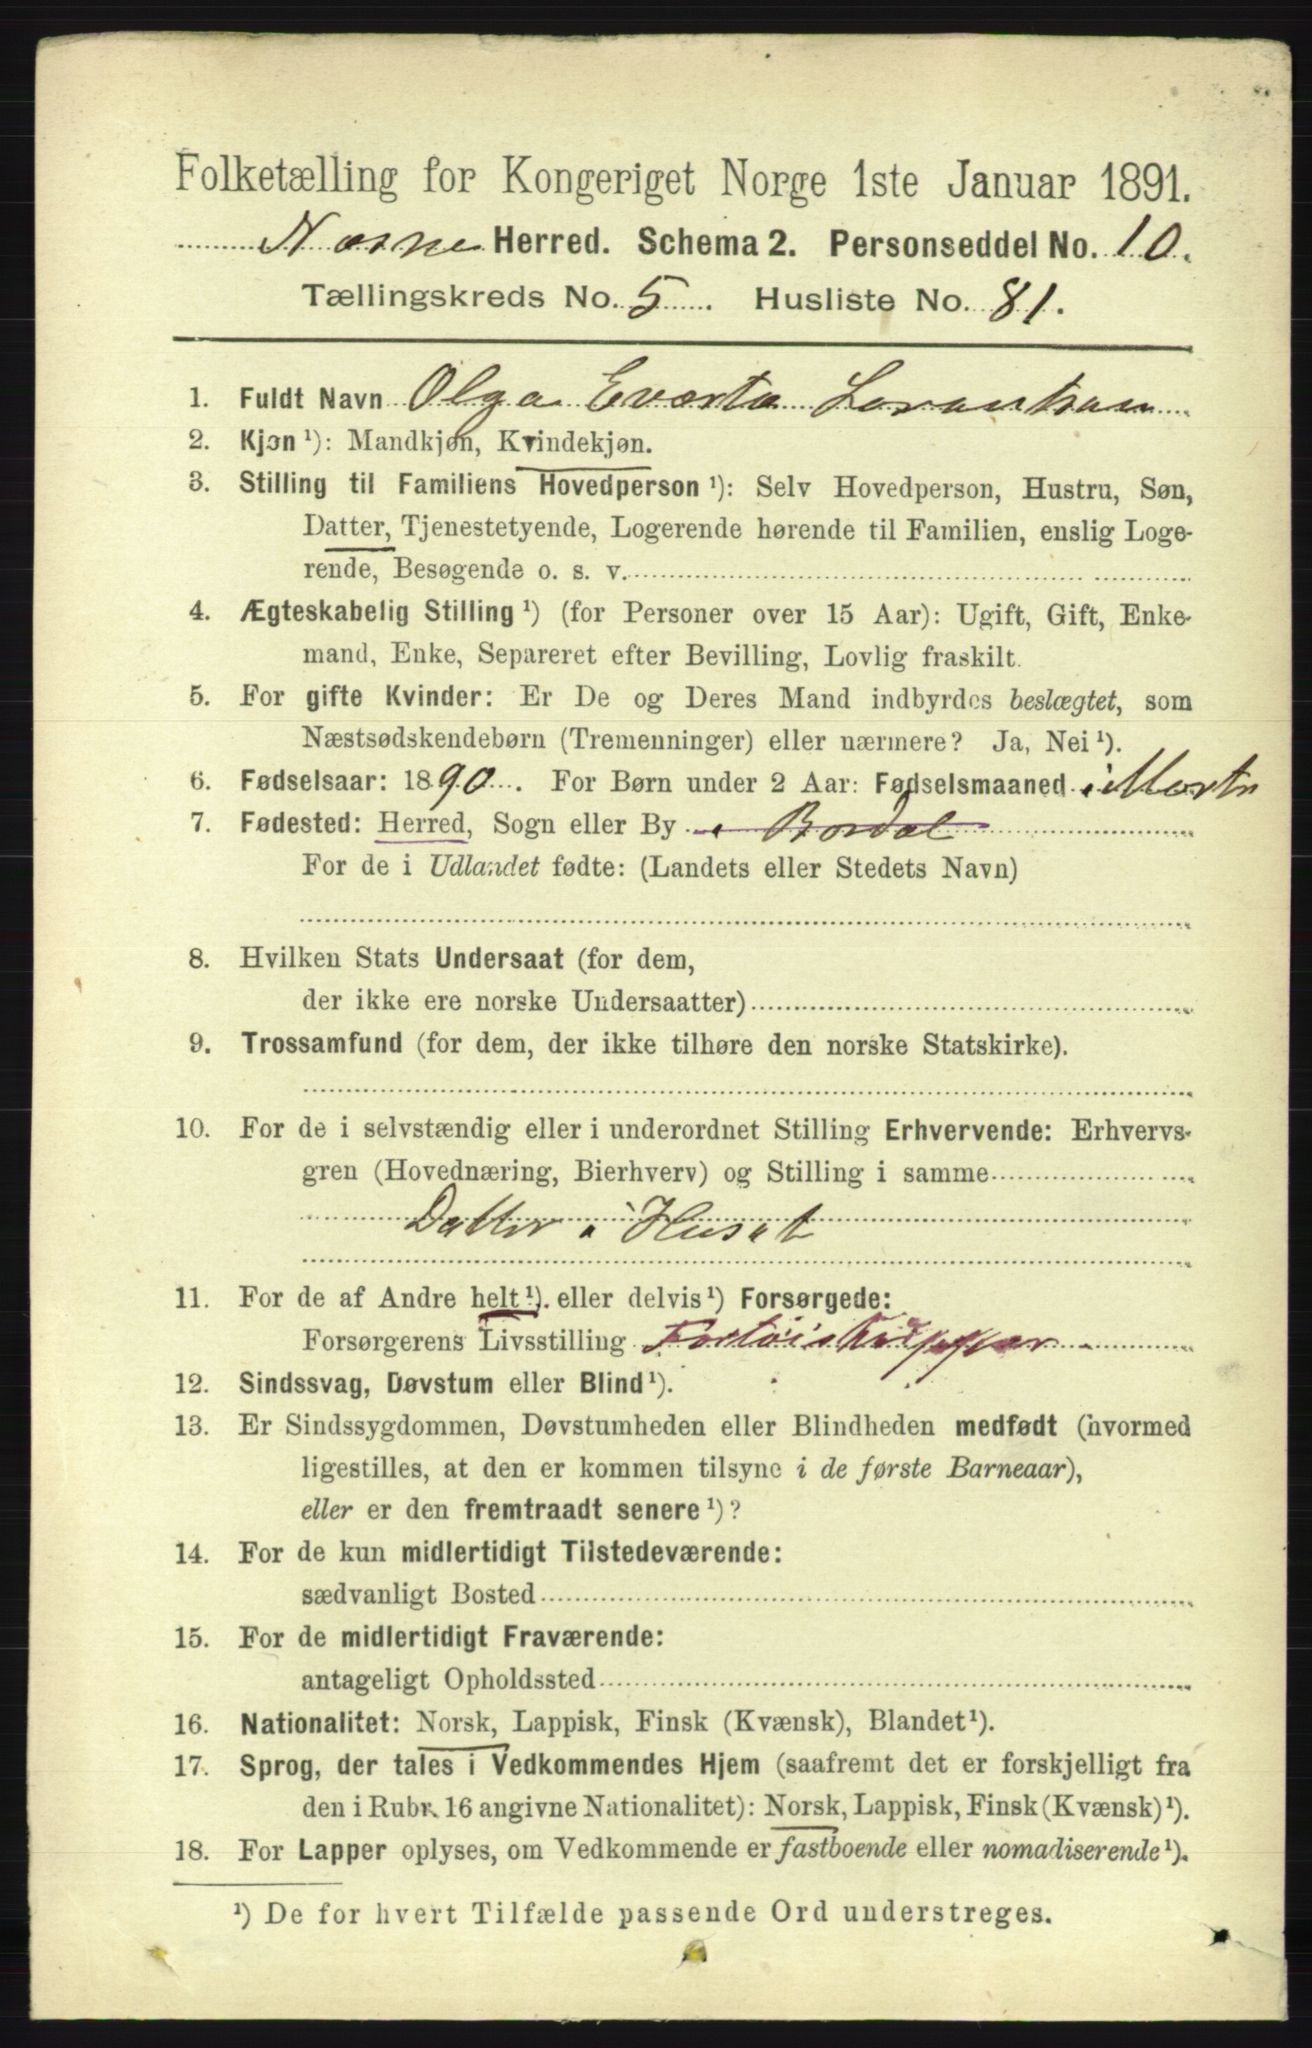 Folketælling for Kongeriget Norge 1ste Januar 1891.
Næsne Herred. Schema 2. Personseddel No. 10.
Tællingskreds No. 5. Husliste No. 81.
1. Fuldt Navn Olga Everta
2. Kjøn ¹): Mandkjøn, Kvindekjøn.
3. Stilling til Familiens Hovedperson ¹): Selv Hovedperson, Hustru, Søn,
Datter, Tjenestetyende, Logerende hørende til Familien, enslig Loge-
rende, Besøgende o. s. v.
4. Ægteskabelig Stilling ¹) (for Personer over 15 Aar): Ugift, Gift, Enke-
mand, Enke, Separeret efter Bevilling, Lovlig fraskilt.
5. For gifte Kvinder: Er De og Deres Mand indbyrdes beslægtet, som
Næstsødskendebørn (Tremenninger) eller nærmere? Ja, Nei ¹).
6. Fødselsaar: 1890. For Børn under 2 Aar: Fødselsmaaned i Marts
7. Fødested: Herred, Sogn eller By i Bordal
For de i Udlandet fødte: (Landets eller Stedets Navn)
8. Hvilken Stats Undersaat (for dem,
der ikke ere norske Undersaatter)
9. Trossamfund (for dem, der ikke tilhøre den norske Statskirke).
10. For de i selvstændig eller i underordnet Stilling Erhvervende: Erhvervs-
gren (Hovednæring, Bierhverv) og Stilling i samme
Datter i Huset
11. For de af Andre helt ¹). eller delvis ¹) Forsørgede:
Forsørgerens Livsstilling Fortøiskipper
12. Sindssvag, Døvstum eller Blind ¹).
13. Er Sindssygdommen, Døvstumheden eller Blindheden medfødt (hvormed
ligestilles, at den er kommen tilsyne i de første Barneaar),
eller er den fremtraadt senere ¹)?
14. For de kun midlertidigt Tilstedeværende:
sædvanligt Bosted
15. For de midlertidigt Fraværende:
antageligt Opholdssted
16. Nationalitet: Norsk, Lappisk, Finsk (Kvænsk), Blandet ¹).
17. Sprog, der tales i Vedkommendes Hjem (saafremt det er forskjelligt fra
den i Rubr. 16 angivne Nationalitet): Norsk, Lappisk, Finsk (Kvænsk) ¹).
18. For Lapper oplyses, om Vedkommende er fastboende eller nomadiserende ¹).
¹) De for hvert Tilfælde passende Ord understreges.